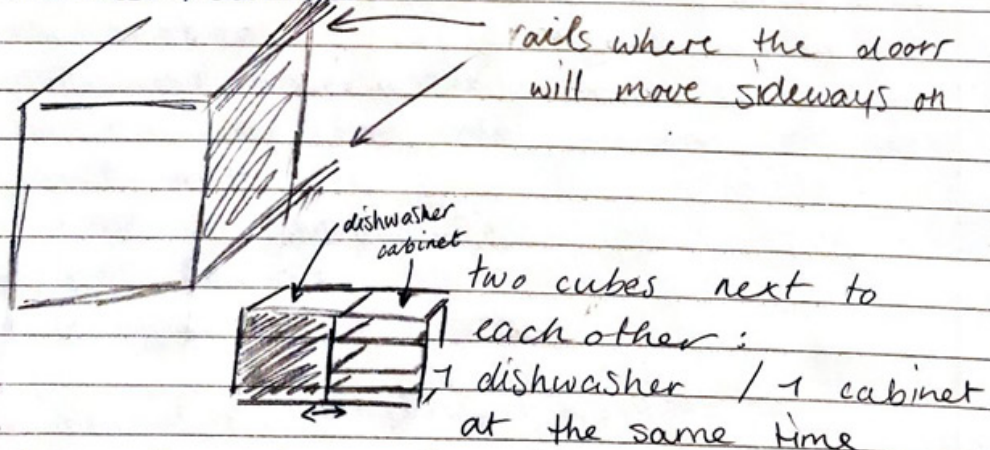 rails where the doors
will move sideways on
dishwasher
cabinet
two cubes next to
each other :
1 dishwasher / 1 cabinet
at the same time